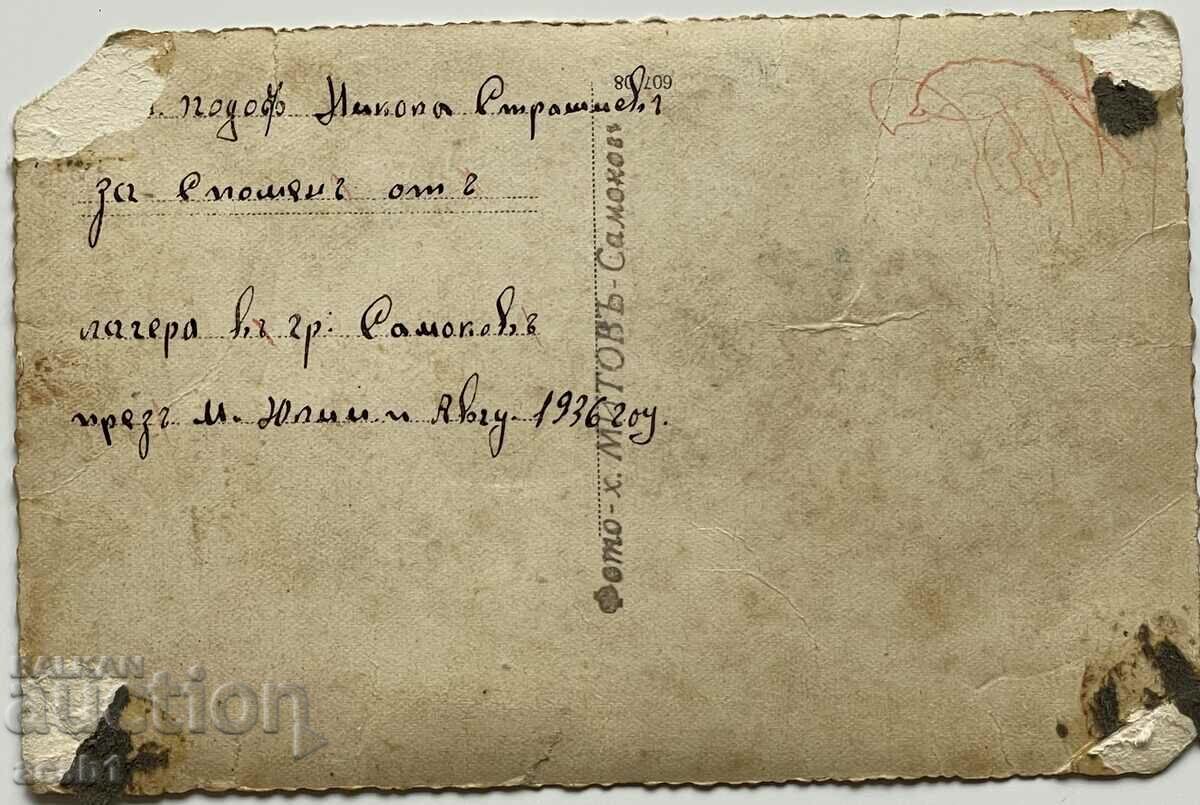 подоф Никола Страшиевъ
за Споменъ отъ
лагера въ гр. Самоковъ
презъ м. Юлий и Авгу. 1936 год.
Фото-х. МИТОВЪ-Самоковъ
BALKAN
auction